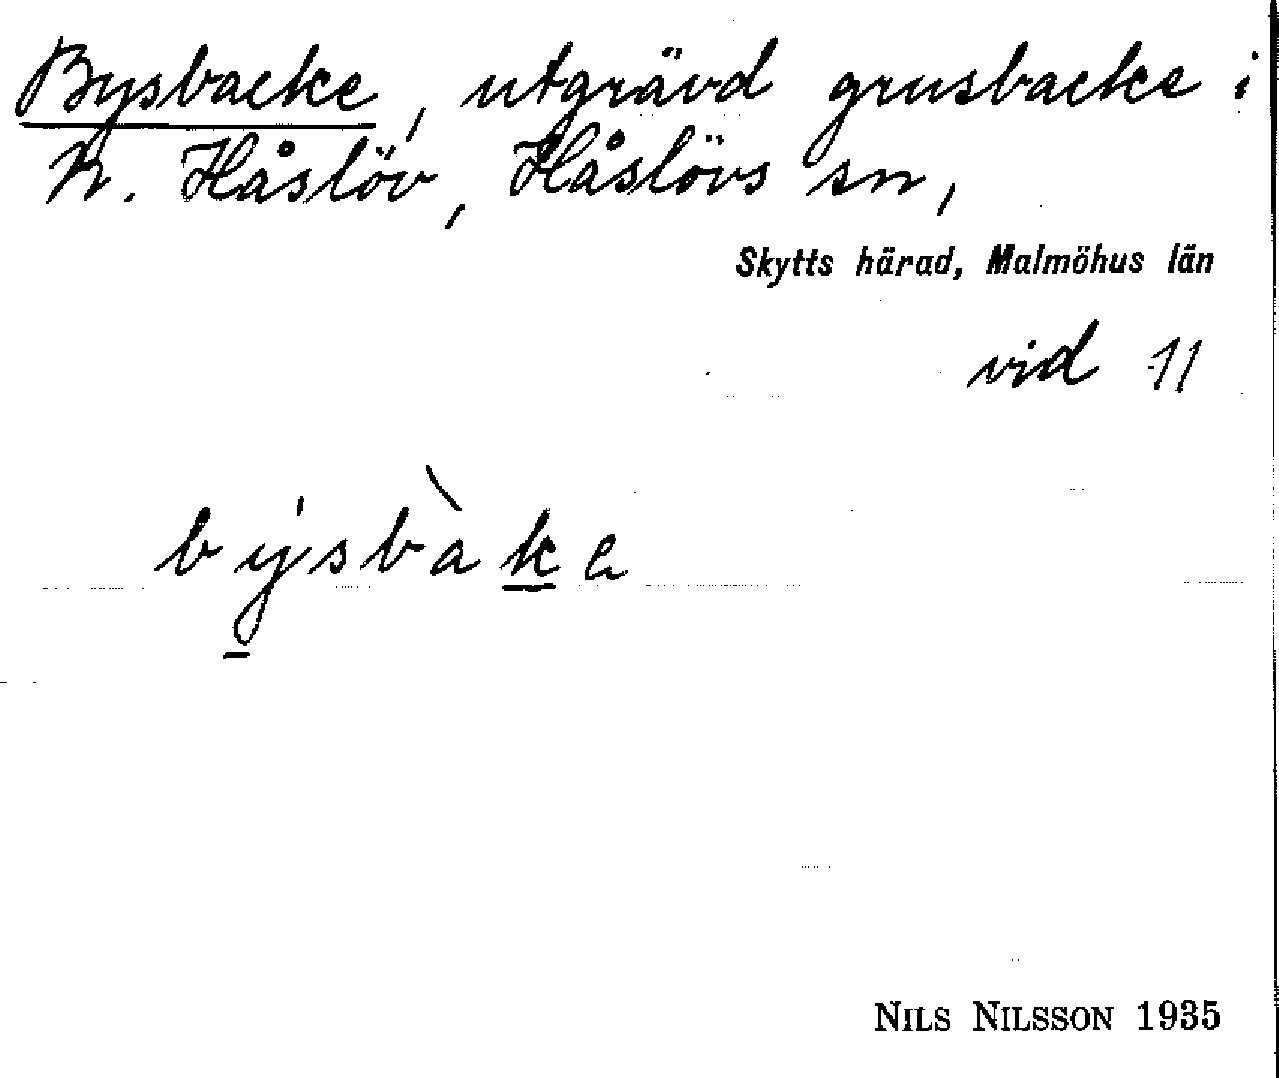 Bysbacke, utgrävd grusbacke i
N. Håslöv, Håslövs sn,
Skytts härad, Malmöhus län
vid 11
býsbàka
NILS NILSSON 1935